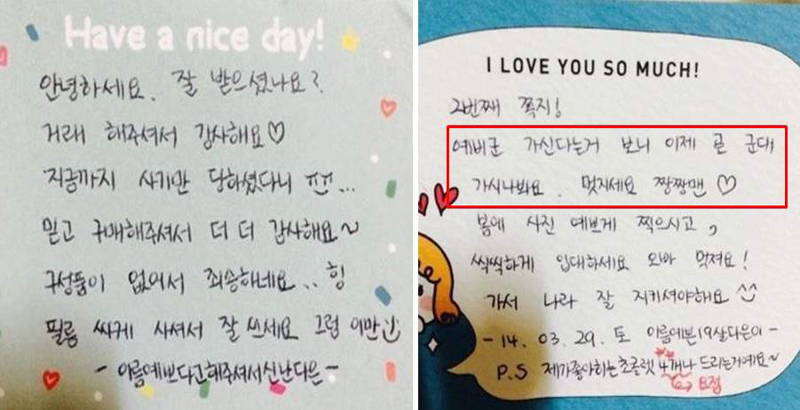 Have a nice day!
안녕하세요. 잘 받으셨나요?
거래 해주셔서 감사해요♡
지금까지 사기만 당하셨다니 ㅠㅠ...
믿고 구매해주셔서 더 더 감사해요~
구성품이 없어서 죄송하네요.. 힝
필름 싸게 사셔서 잘 쓰세요 그럼 이만
- 이름예쁘다고해주셔서신난다은 -
I LOVE YOU SO MUCH!
2번째 쪽지!
예비군 가신다는거 보니 이제 곧 군대
가시나봐요. 멋지세요 짱짱맨 ♡
봄에 사진 예쁘게 찍으시고,
씩씩하게 입대하세요 오빠 멋져요!
가서 나라 잘 지키셔야해요
- 14. 03. 29. 토 이름예쁜19살다은이 -
P.S 제가좋아하는초콜렛 4개나 드리는거예요~
요점